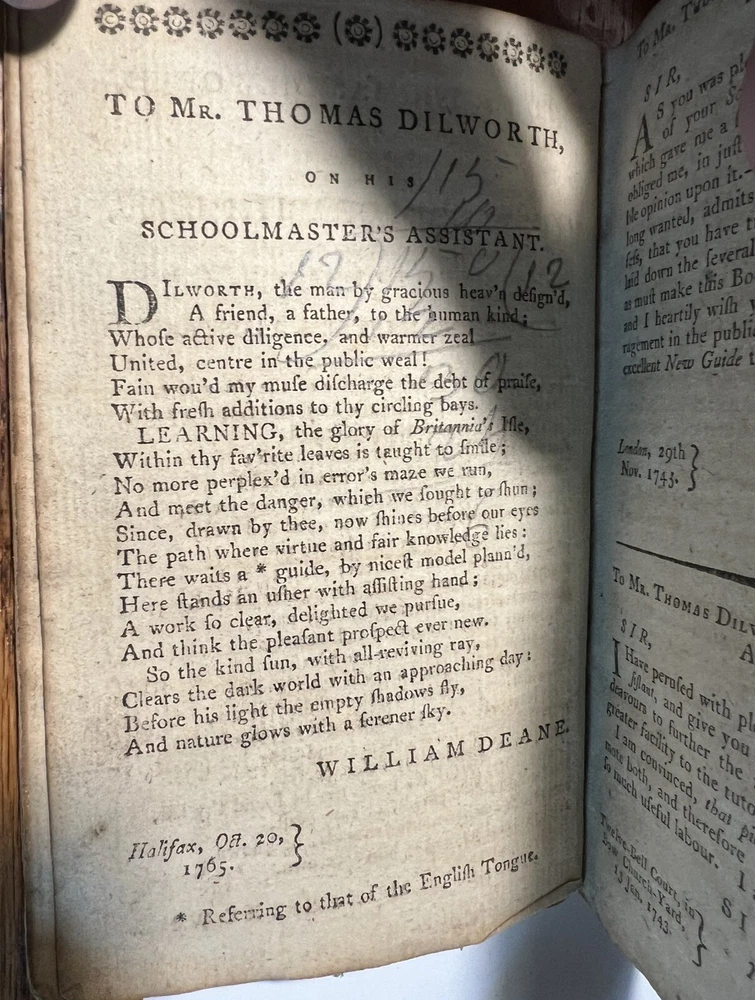 TO MR. THOMAS DILWORTH,
ON HIS
SCHOOLMASTER'S ASSISTANT.
115
DILWORTH, the man by gracious heav'n deſign'd,
A friend, a father, to the human kind;
Whoſe active diligence, and warmer zeal
United, centre in the public weal!
Fain wou'd my muſe diſcharge the debt of praiſe,
With freſh additions to thy circling bays.
LEARNING, the glory of Britannia's Iſle,
Within thy fav'rite leaves is taught to ſmile;
No more perplex'd in error's maze we run,
And meet the danger, which we ſought to ſhun;
Since, drawn by thee, now ſhines before our eyes
The path where virtue and fair knowledge lies:
There waits a * guide, by niceſt model plann'd,
Here ſtands an uſher with aſſiſting hand;
A work ſo clear, delighted we purſue,
And think the pleaſant proſpect ever new.
So the kind ſun, with all-reviving ray,
Clears the dark world with an approaching day:
Before his light the empty ſhadows fly,
And nature glows with a ſerener ſky.
WILLIAM DEANE.
Halifax, Oct. 20,
1765.
* Referring to that of the Engliſh Tongue.
To MR.
SIR,
AS you was
of your
which gave me a
obliged me, in juſt
opinion upon it.—
long wanted, admits
that you have
laid down the ſeveral
as muſt make this
and I heartily wiſh
in the
excellent New Guide
London, 29th
Nov. 1743.
To MR. THOMAS
SIR,
I Have peruſed with
and give you
to further the
greater facility to the
I am convinced, that
both, and therefore
ſo much uſeful labour. I
Twelve-Bell Court, in
Bow Church-Yard,
13 Jan. 1743.